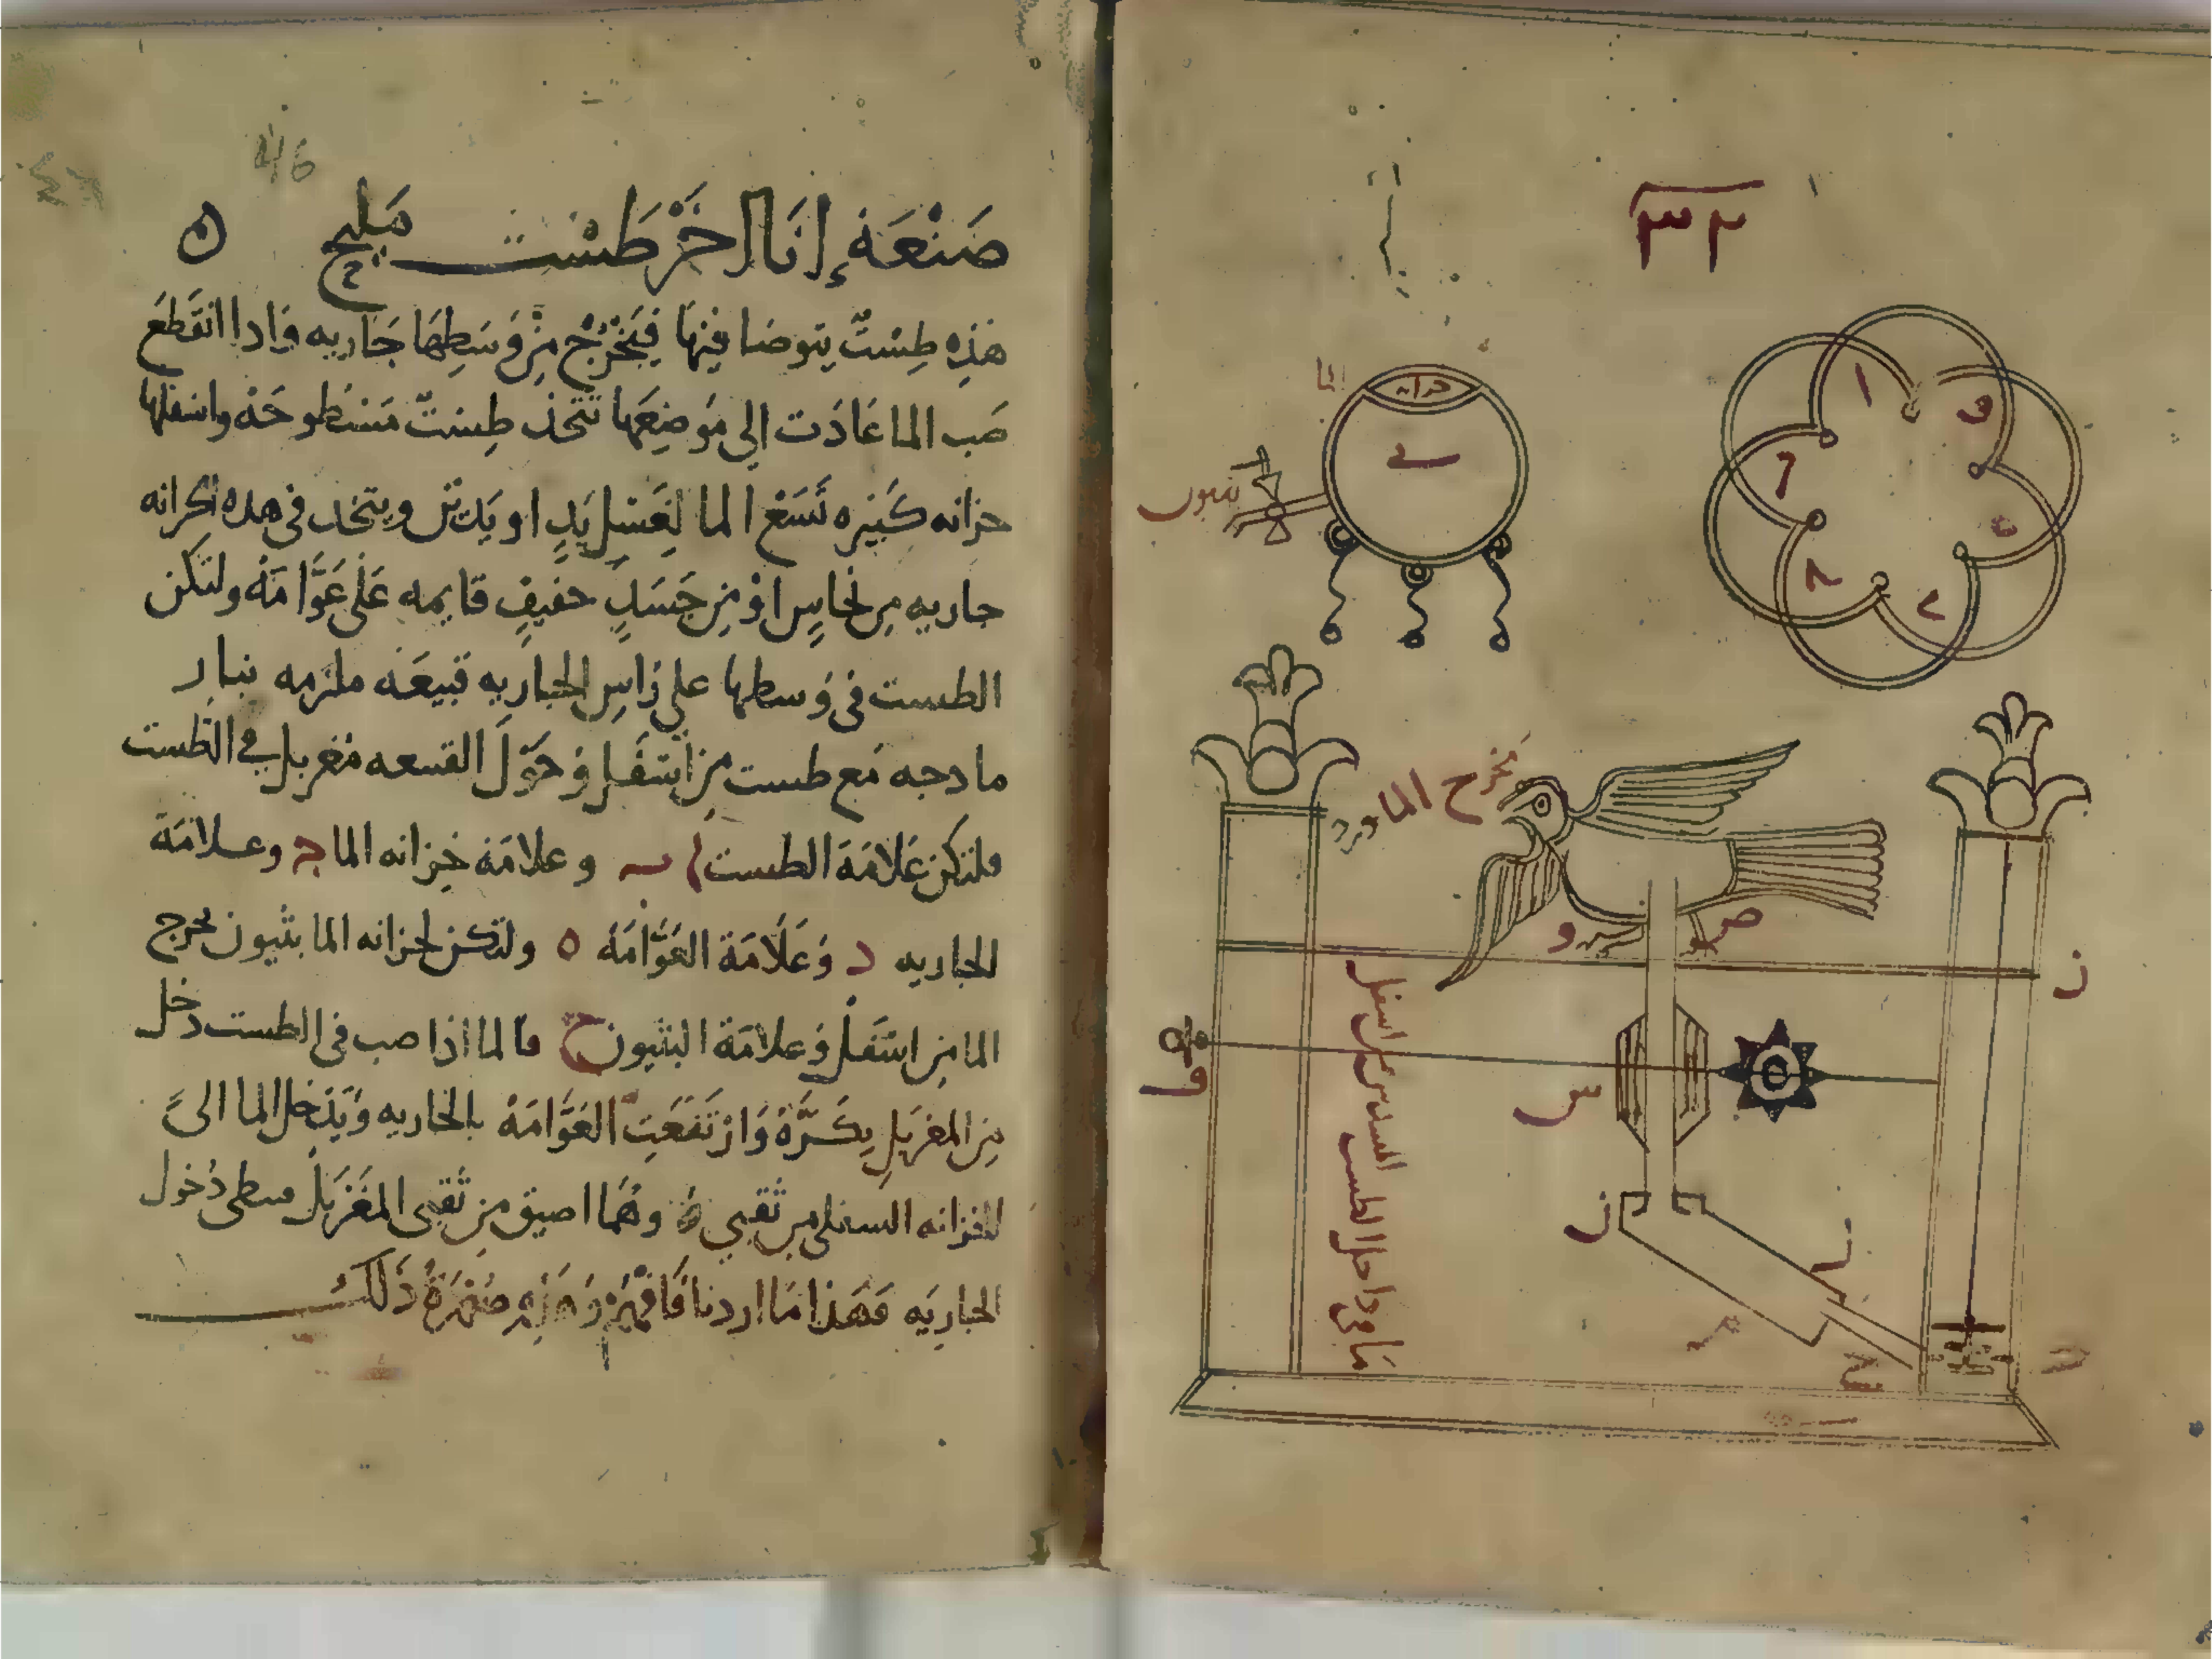 ٣٢
ا
و
ه
د
الما
خزانه
بثيون
مخرج الماورد
ص
و
ز
س
ز
ح
ما من داخل الطست
صَنْعَة إنَاا اخَرْ طَسْت مَليح ه
هَذِه طِسْتٌ يتوضا فيهَا فَيَخْرُجُ مِنْ وَسَطِهَا جَاريه وَادا انقَطَعَ
صَب الما عَادَت إلى مَوضِعَها تتخذ طِستٌ مَسْطُوحَه واسفلها
خزانه كَبيره تَسَعْ الما لِغَسْل يَدٍ او يَدَيْن ويتخد فى هده الخزانه
جاريه من نحاسٍ اوْ مِن جَسَدٍ خفيفٍ قايمه عَلى عَوَّامَةُ ولتكن
الطست فى وَسطها على رَاسِ الجاريه قبيعَه ملزمه ببار
مادجه مَع طست مِن اسْفَل وَحَوْلَ القبعه مُغربل فى الطَست
فلتكن عَلامَة الطست ا ب وعلامَة خِزانه الما ج وعلامَة
الجاريه د وَعَلَامَة العَوَّامَة ه ولتكن لخزانه الما بثيون يخرج
الما مِن اسْفَل وَعلامَة البثيون ح فالما اذا صب فى الطست دخل
مِن المغربَلِ بِكَثَرَةْ وَارْتَفَعَتِ العَوَّامَهْ بالجاريه وَيَدْخل الما الى
الخزانه السفلى من ثقبي ه وهُمَا اضيق مِن ثُقبى المغَرْبَلْ فيبطى دُخول
الجاريَه فَهَذا مَا اردنا فَافْهَمْ وَهَذِهِ صُوْرَةُ ذَلكَ